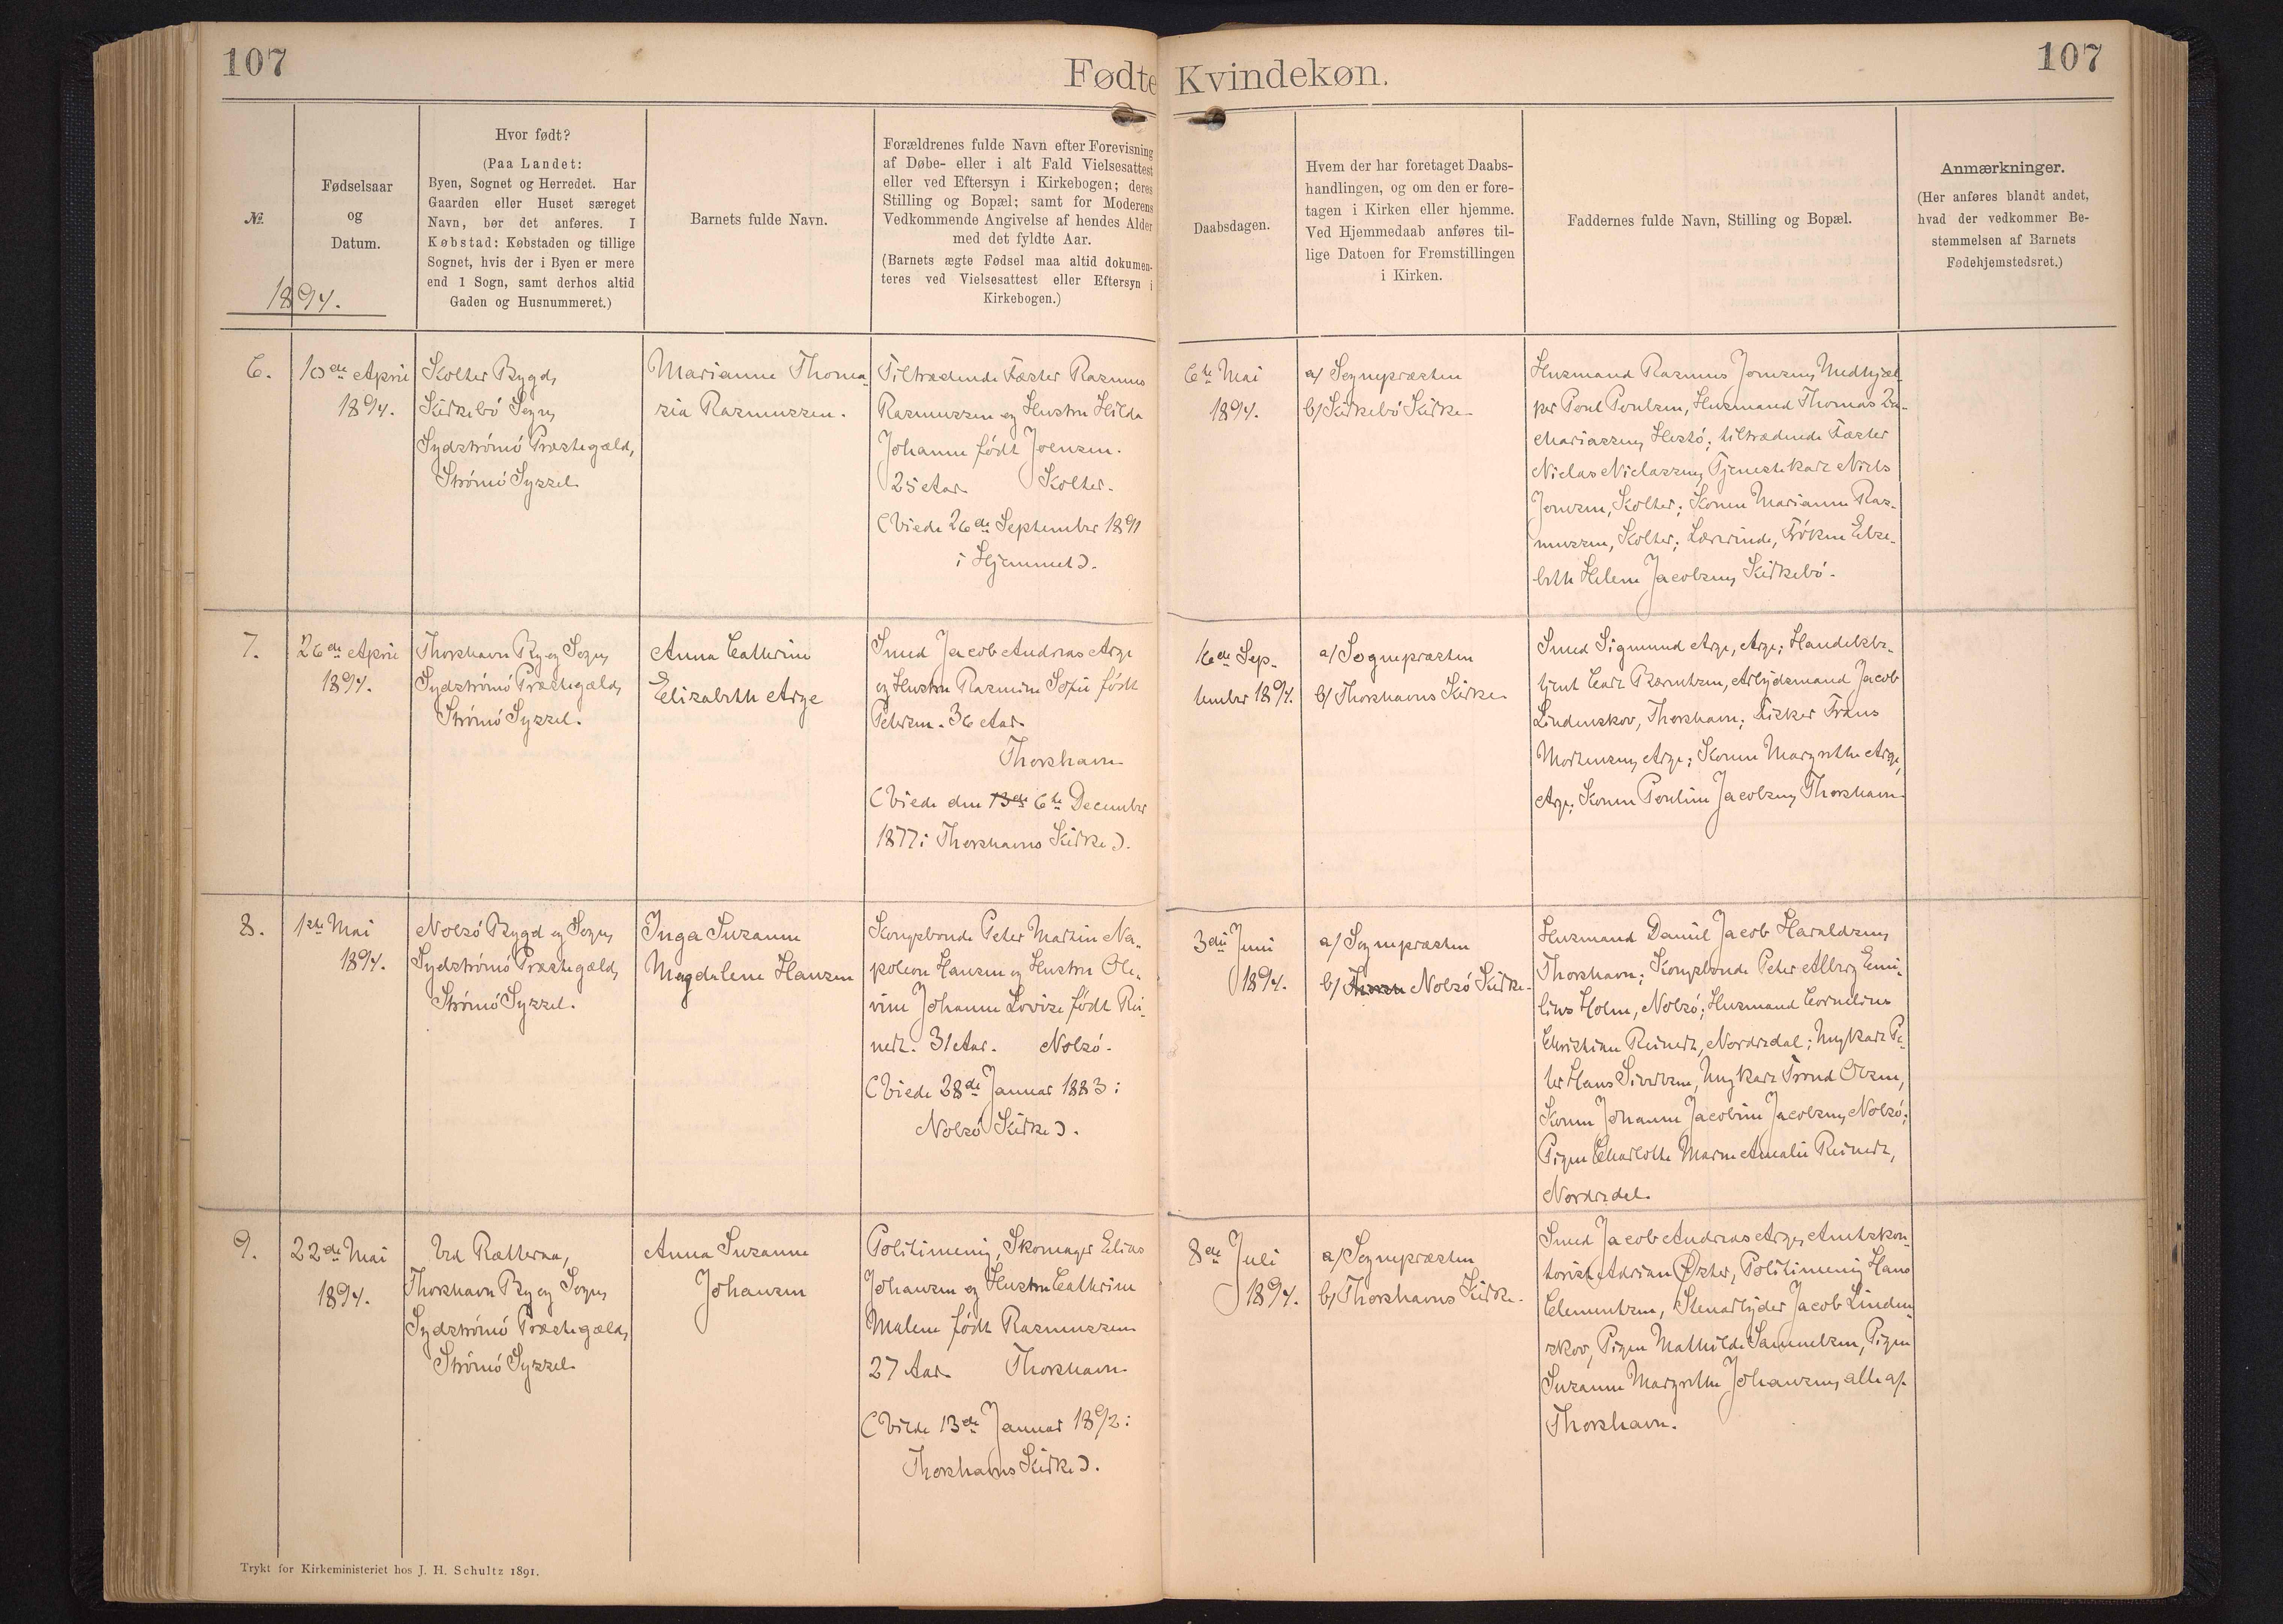 107
Fødte Kvindekøn.
107
№
Fødselsaar
og
Datum.
1894.
Hvor født?
(Paa Landet:
Byen, Sognet og Herredet. Har
Gaarden eller Huset særeget
Navn, bør det anføres. I
Købstad: Købstaden og tillige
Sognet, hvis der i Byen er mere
end 1 Sogn, samt derhos altid
Gaden og Husnummeret.)
Barnets fulde Navn.
Forældrenes fulde Navn efter Forevisning
af Døbe- eller i alt Fald Vielsesattest
eller ved Eftersyn i Kirkebogen; deres
Stilling og Bopæl; samt for Moderens
Vedkommende Angivelse af hendes Alder
med det fyldte Aar.
(Barnets ægte Fødsel maa altid dokumen-
teres ved Vielsesattest eller Eftersyn i
Kirkebogen.)
Daabsdagen.
Hvem der har foretaget Daabs-
handlingen, og om den er fore-
tagen i Kirken eller hjemme.
Ved Hjemmedaab anføres til-
lige Datoen for Fremstillingen
i Kirken.
Faddernes fulde Navn, Stilling og Bopæl.
Anmærkninger.
(Her anføres blandt andet,
hvad der vedkommer Be-
stemmelsen af Barnets
Fødehjemstedsret.)
6.
10de April
1894.
Kolter Bygd,
Kirkebö Sogn,
Sydströmö Præstegæld,
Strömö Syssel.
Marianne Thoma-
sia Rasmussen.
Tiltrædende Fæster Rasmus
Rasmussen og Hustru Hilda
Johanne født Joensen.
25 Aar. Kolter.
(Viede 26de September 1891
i Hjemmet).
6te Mai
1894.
a/ Sognepræsten
b/ Kirkebö Kirke.
Husmand Rasmus Joensen, Medhjæl-
per Poul Poulsen, Husmand Thomas Za-
chariassen, Hestö; tiltrædende Fæster
Niclas Niclassen, Tjenestekarl Niels
Joensen, Kolter; Konen Marianne Ras-
mussen, Kolter; Lærerinde, Fröken Elsa-
beth Helene Jacobsen, Kirkebö.
7.
26de April
1894.
Thorshavn By og Sogn,
Sydströmö Præstegæld,
Strömö Syssel.
Anna Cathrine
Elisabeth Arge
Smed Jacob Andreas Arge
og Hustru Rasmine Sofie født
Petersen. 36 Aar.
Thorshavn
(Viede den 13de 6te December
1877 i Thorshavns Kirke).
16de Sep-
tember 1894.
a/ Sognepræsten
b/ Thorshavns Kirke.
Smed Sigmund Arge, Arge; Handelsbe-
tjent Carl Bærentsen, Arbejdsmand Jacob
Lindenskov, Thorshavn; Fisker Frans
Mortensen, Arge; Konen Margrethe Arge,
Arge; Konen Pouline Jacobsen, Thorshavn.
8.
1ste Mai
1894.
Nolsö Bygd og Sogn,
Sydströmö Præstegæld,
Strömö Syssel.
Inga Susanne
Magdalene Hansen
Kongsbonde Peter Martin Na-
poleon Hansen og Hustru Ole-
vine Johanne Lovise født Rei-
nert. 31 Aar. Nolsö.
(Viede 28de Januar 1883 i
Nolsö Kirke).
3die Juni
1894.
a/ Sognepræsten
b/ Nolsö Kirke.
Husmand Daniel Jacob Haraldsen,
Thorshavn; Kongsbonde Peter Alberg Emi-
lius Holm, Nolsö; Husmand Cornelius
Christian Reinert, Nordredal; Ungkarl Pe-
ter Hans Sivertsen, Ungkarl Trond Olsen,
Konen Johanne Jacobine Jacobsen, Nolsö;
Pigen Charlotte Maren Amalie Reinert,
Nordredal.
9.
22de Mai
1894.
Ved Rætterna,
Thorshavn By og Sogn,
Sydströmö Præstegæld,
Strömö Syssel.
Anna Susanne
Johansen
Politimenig, Skomager Elias
Johansen og Hustru Cathrine
Malene født Rasmussen
27 Aar. Thorshavn
(Viede 13de Januar 1892 i
Thorshavns Kirke).
8de Juli
1894.
a/ Sognepræsten
b/ Thorshavns Kirke.
Smed Jacob Andreas Arge, Amtskon-
torist Adrian Øster, Politimenig Hans
Clementsen, Stenarbejder Jacob Linden-
skov, Pigen Mathilde Samuelsen, Pigen
Susanne Margrethe Johansen, alle af
Thorshavn.
Trykt for Kirkeministeriet hos J. H. Schultz 1891.